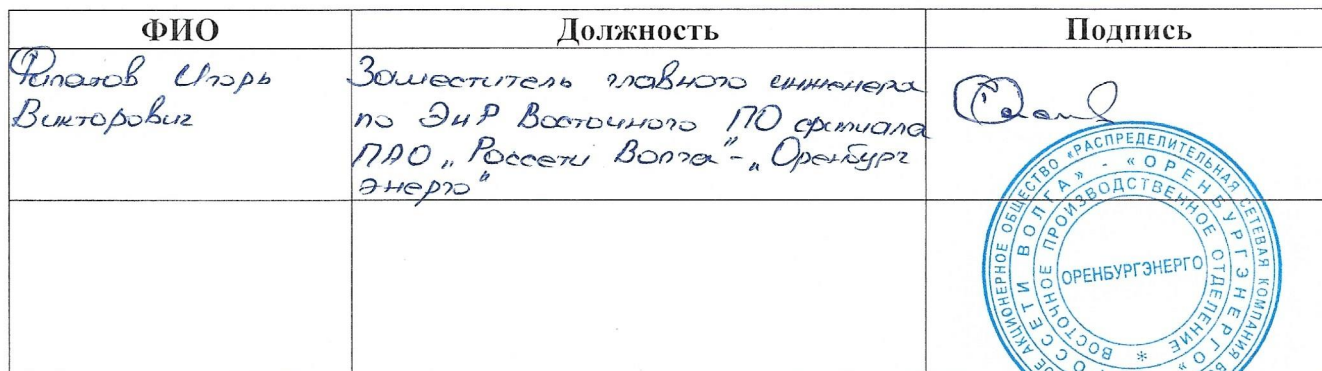 ФИО Должность Подпись
Филатов Игорь
Викторович
Заместитель главного инженера
по ЭиР Восточного ПО филиала
ПАО „Россети Волга"-„Оренбург
энерго"
АКЦИОНЕРНОЕ ОБЩЕСТВО «РАСПРЕДЕЛИТЕЛЬНАЯ СЕТЕВАЯ КОМПАНИЯ
РОССЕТИ ВОЛГА» - «ОРЕНБУРГЭНЕРГО»
ВОСТОЧНОЕ ПРОИЗВОДСТВЕННОЕ ОТДЕЛЕНИЕ *
ОРЕНБУРГЭНЕРГО